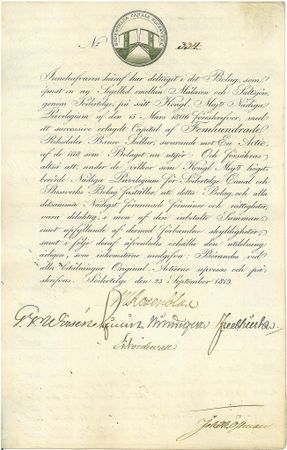 SÖDERTELGE CANALS
No 334
Innehafvaren häraf har deltagit i det Bolag, som
öpnat en ny Segelled emellan Mälaren och Saltsjön,
genom Södertelge, på sätt Kongl. Maj:ts Nådiga
Privilegium af den 15 Mars 1806 föreskrifver, med
ett successive erlagdt Capital af Femhundrade
Riksdaler Banco Sedlar, svarande mot En Actie
af de 1118 som Bolaget nu utgör: Och försäkras
altså att, under de vilkor som Kongl. Maj:ts högst-
berörde Nådiga Privilegium för Södertelge Canal och
Slussverks Bolag fastställer, uti detta Bolag och alla
detsamma Nådigst förunnade förmåner och rättigheter,
vara delaktig, i mon af den inbetalte Summan
emot uppfyllande af dermed förbundne skyldigheter,
samt i följe deraf åfvenledes erhålla den utdelning
årligen, som inkomsterne medgifva: Börandes vid
alla Utdelningar Original Actierne upvisas och på-
skrifvas. Södertelge den 23 September 1819.